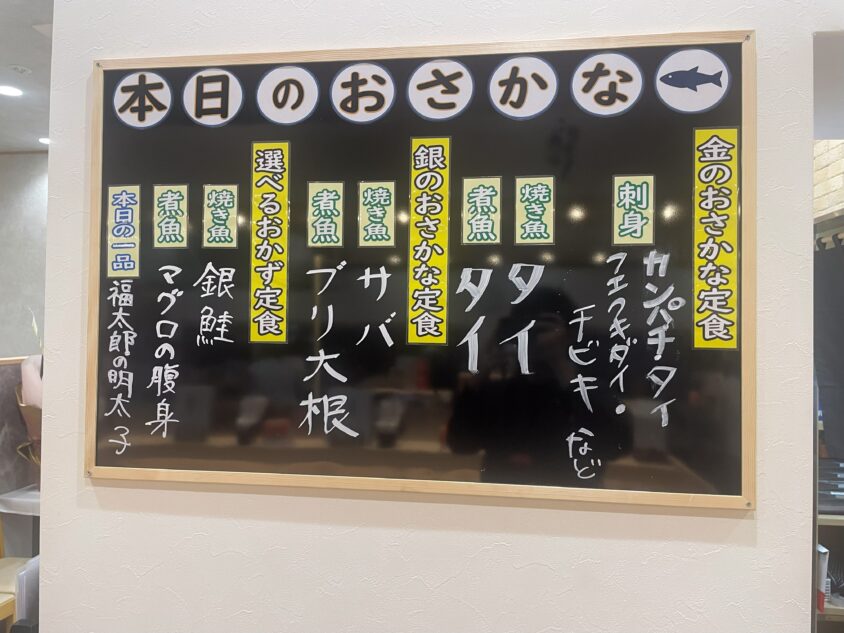 本日のおさかな
金のおさかな定食
刺身
カンパチ・タイ
フエフキダイ・
チビキ など
焼き魚
タイ
煮魚
タイ
銀のおさかな定食
焼き魚
サバ
煮魚
ブリ大根
選べるおかず定食
焼き魚
銀鮭
煮魚
マグロの腹身
本日の一品
福太郎の明太子